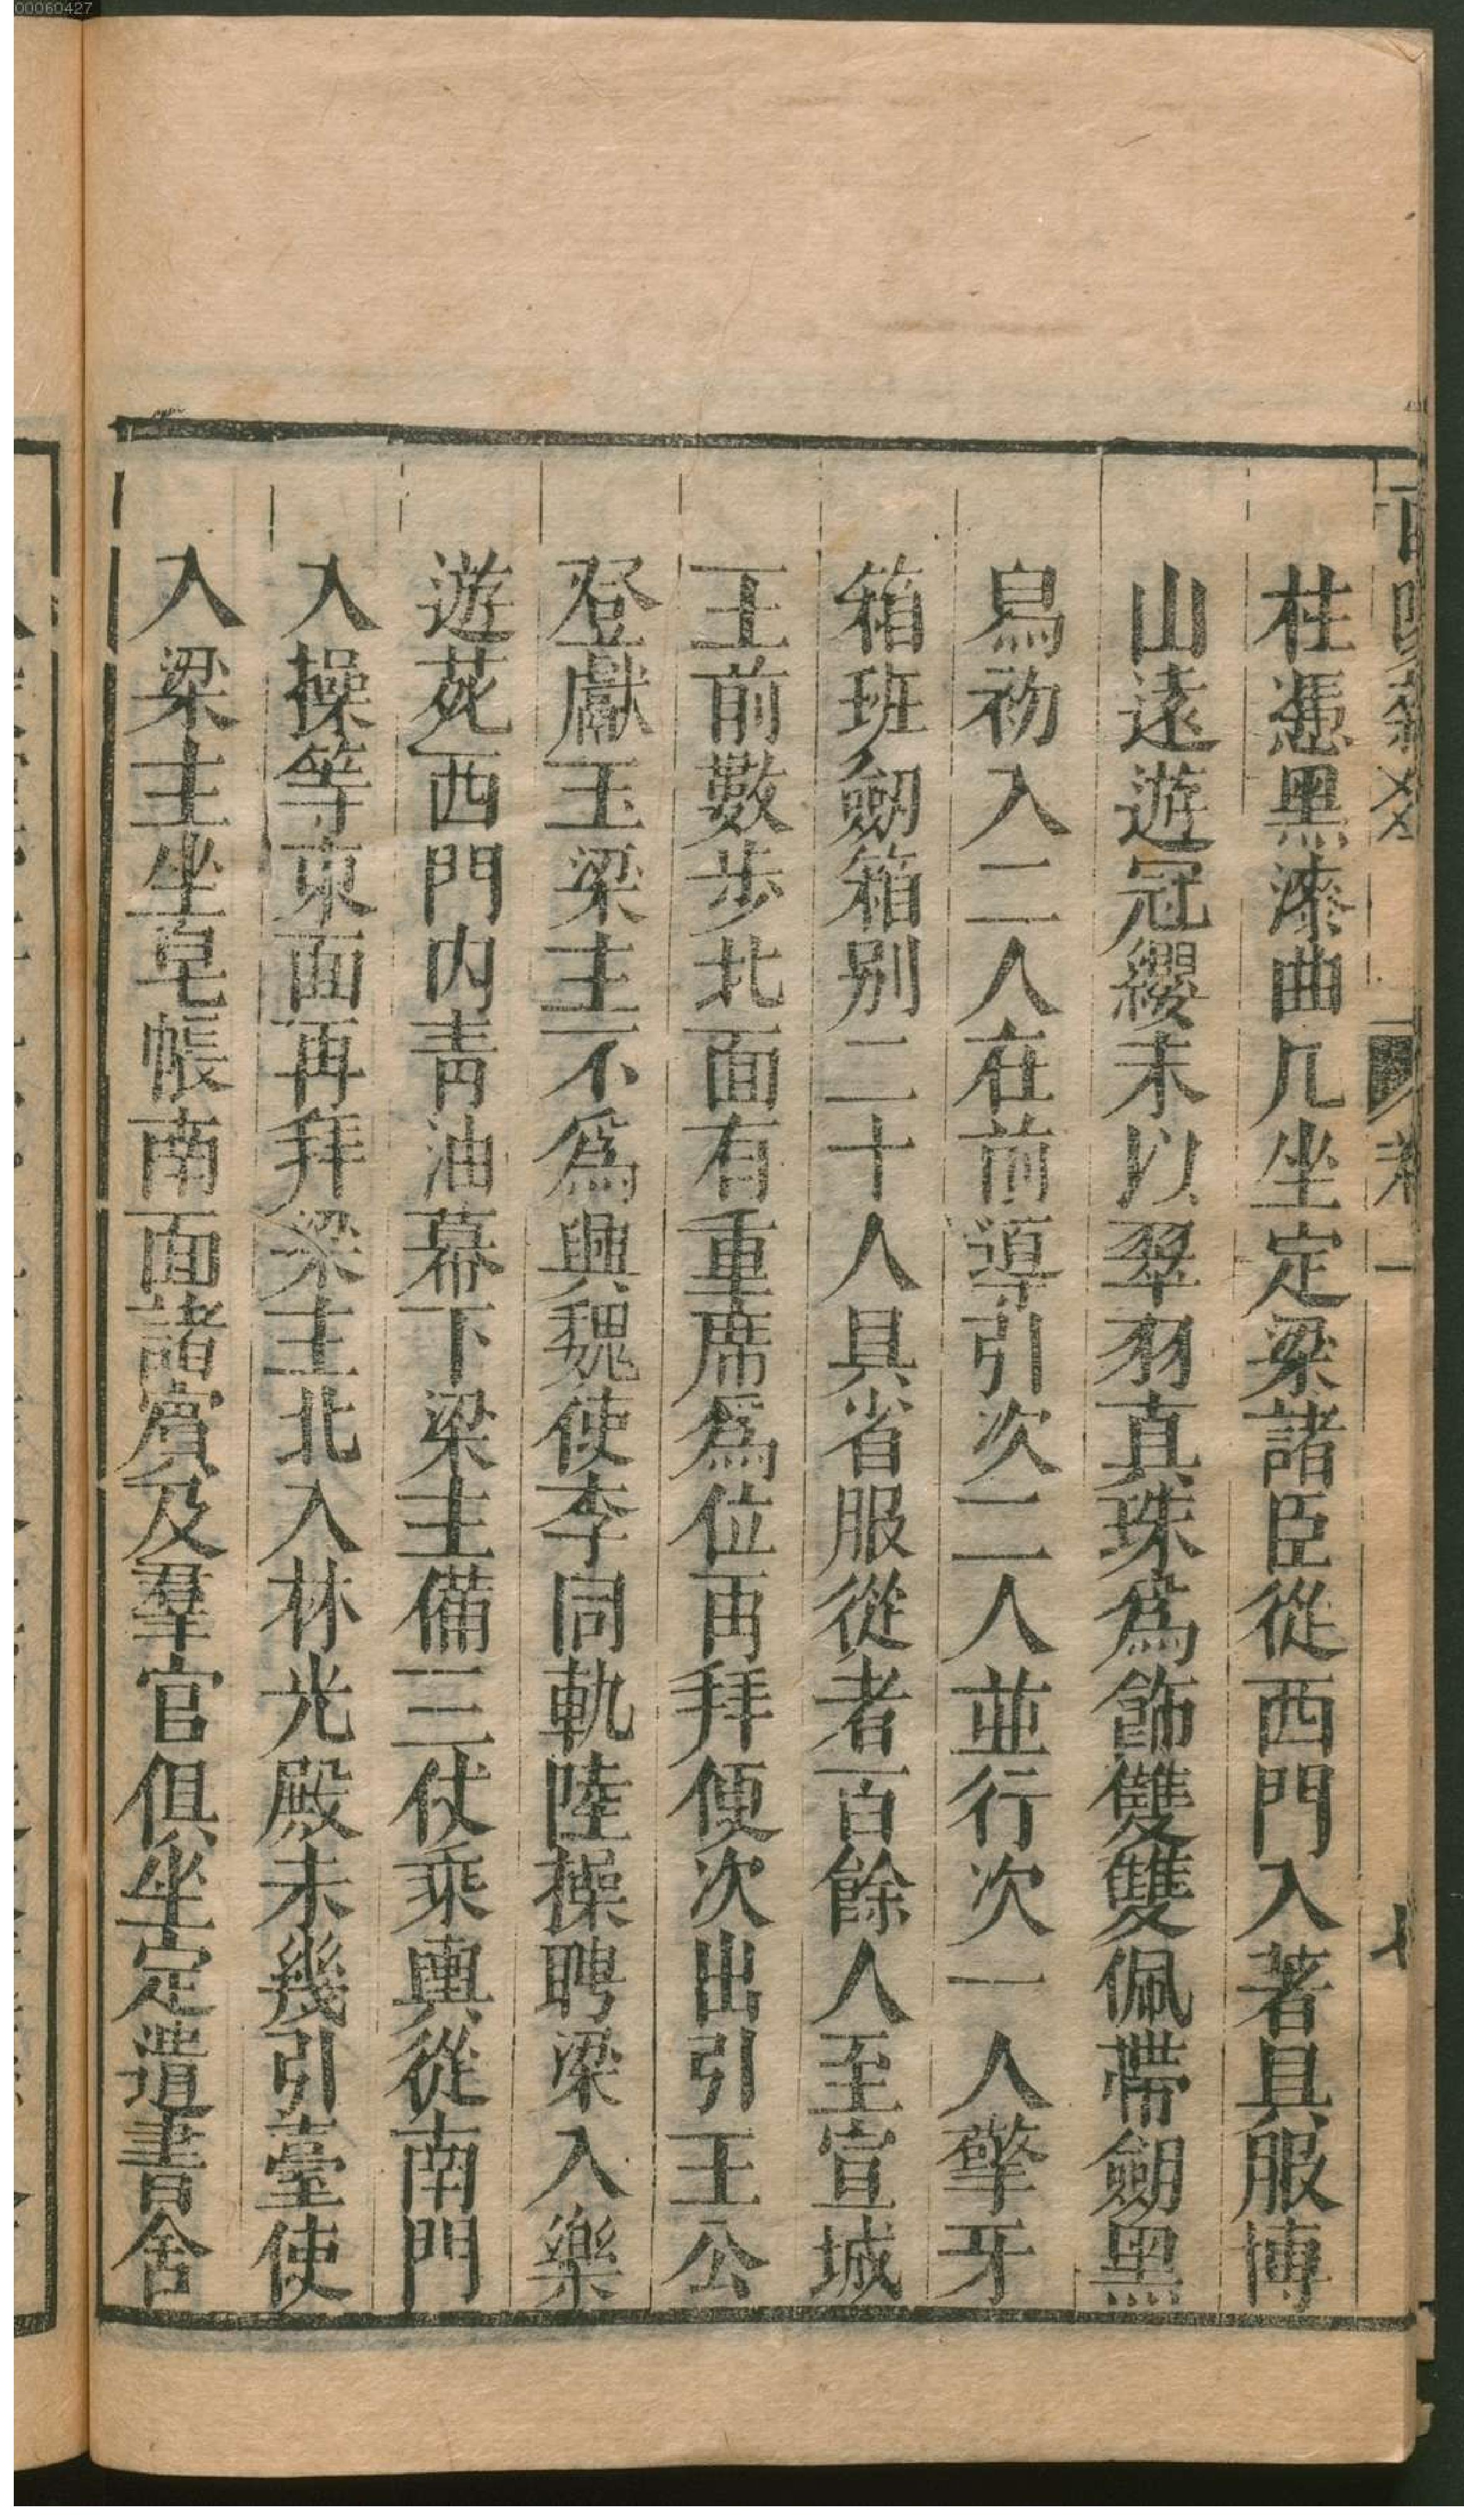 00060427
柱憑黑漆曲几坐定梁諸臣從西門入著具服博
山遠遊冠纓末以翠羽真珠爲飾雙雙佩帶劒黑
舄初入二人在前導引次二人並行次一人擎牙
箱班劒箱別二十人具省服從者百餘人至宣城
王前數步北面有重席爲位再拜便次出引王公
登獻玉梁主不爲興魏使李同軌陸操聘梁入樂
遊苑西門内青油幕下梁主備三仗乘輿從南門
入操等東面再拜梁主北入林光殿未幾引臺使
入梁主坐皂帳南面諸賔及羣官俱坐定遣書舍